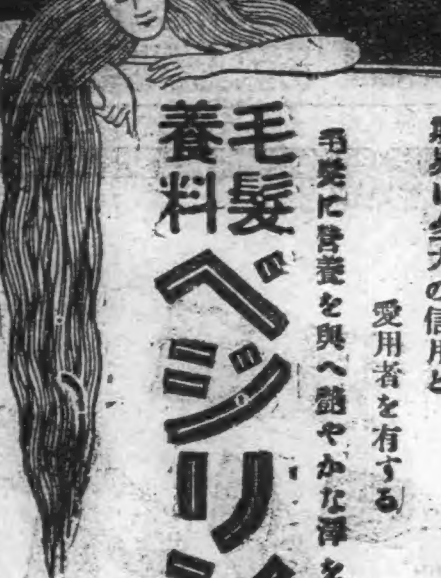 の信用と
愛用者を有する
毛髪に營養を與へ艶やかな澤を
毛髮
養料
ベジリン